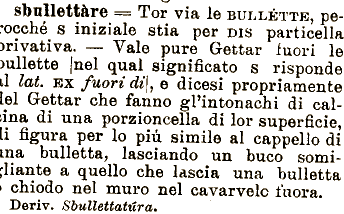 sbullettàre = Tor via le BULLÉTTE, pe-
rocché s iniziale stia per DIS particella
privativa. — Vale pure Gettar fuori le
bullette |nel qual significato s risponde
al lat. EX fuori di|, e dicesi propriamente
del Gettar che fanno gl'intonachi di cal-
cina di una porzioncella di lor superficie,
di figura per lo piú simile al cappello di
una bulletta, lasciando un buco somi-
gliante a quello che lascia una bulletta
o chiodo nel muro nel cavarvelc fuora.
Deriv. Sbullettatúra.